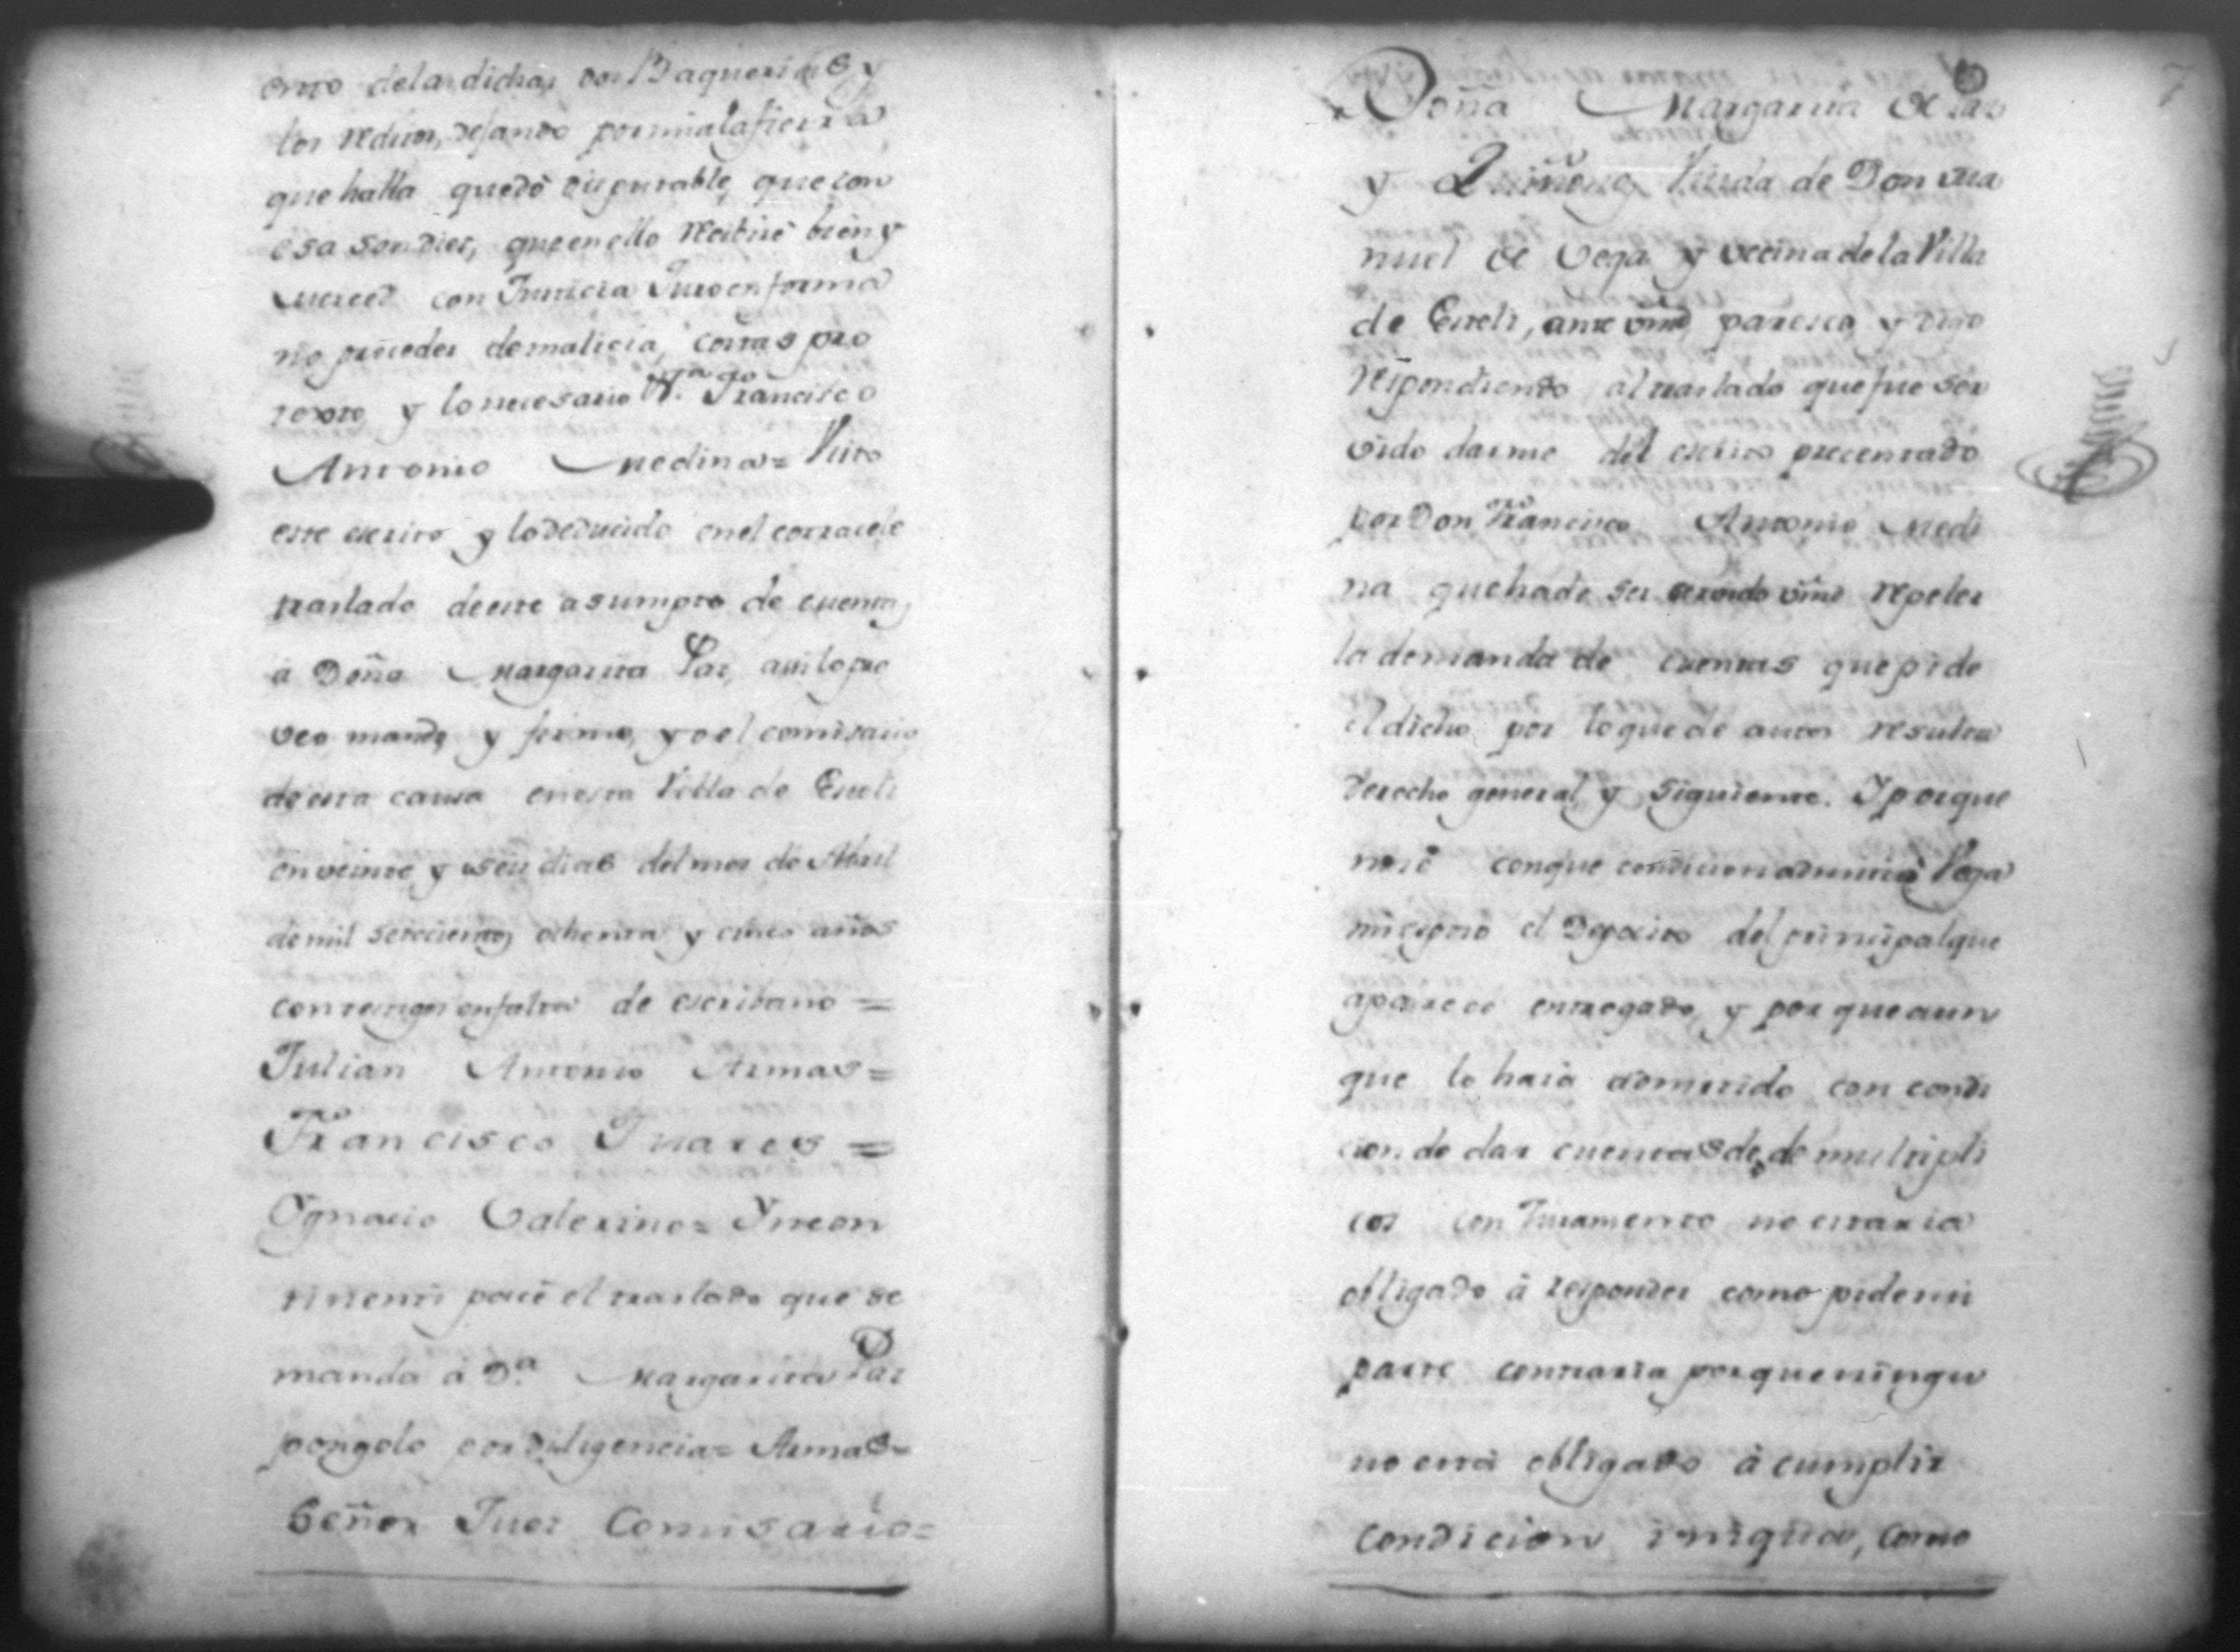 erno delas dichas dos Baquerias, y
los reditos, dejando por nula la fiesta
que halla quedó disputable, que con
esa son dies, que en ello recibiré bien y
merced con Justicia Juro en forma
no proceder de malicia, costas pro
texto, y lo necesario Vª. Francisco
Antonio Medina = Visto
este escrito y lo deducido en el corrasele
traslado de este asumpto de cuentas
á Doña Margarita Paz, assi lo pro
veo mando, y firmo, yo el comisario
de esta causa en esta Villa de Eneli
en veinte y seis dias del mes de Abril
de mil setecientos, ochenta y cinco años
con testigos en falta de escribano =
Julian Antonio Armas =
Francisco Juares =
Ygnacio Galexino = Yncon
tinenti pacé el traslado que se
manda á Dª. Margarita Paz
pongolo por diligencia = Armas =
Señor Juez Comisario =
7
Doña Margarita de Paz
y Quiñones, Viuda de Don Ma
nuel de Vega y vecina de la Villa
de Eneli, ante vmd, paresco, y digo
respondiendo al traslado que fue ser
vido darme del escrito precentado
por Don Francisco Antonio Medi
na que hade ser servido vmd repeler
la demanda de cuentas que pide
el dicho por lo que de autos resulta
derecho general, y siguiente. Y porque
no sé conque condicion admitió Vega
mi esposo el Deposito del principal que
aparece entregado, y por que aun
que lo haia admitido con condi
cion de dar cuentas de de multipli
cos con Juramento no estaria
obligado á responder como pide mi
parte contraria porque ningu
no está obligado á cumplir
condicion iniqua, como